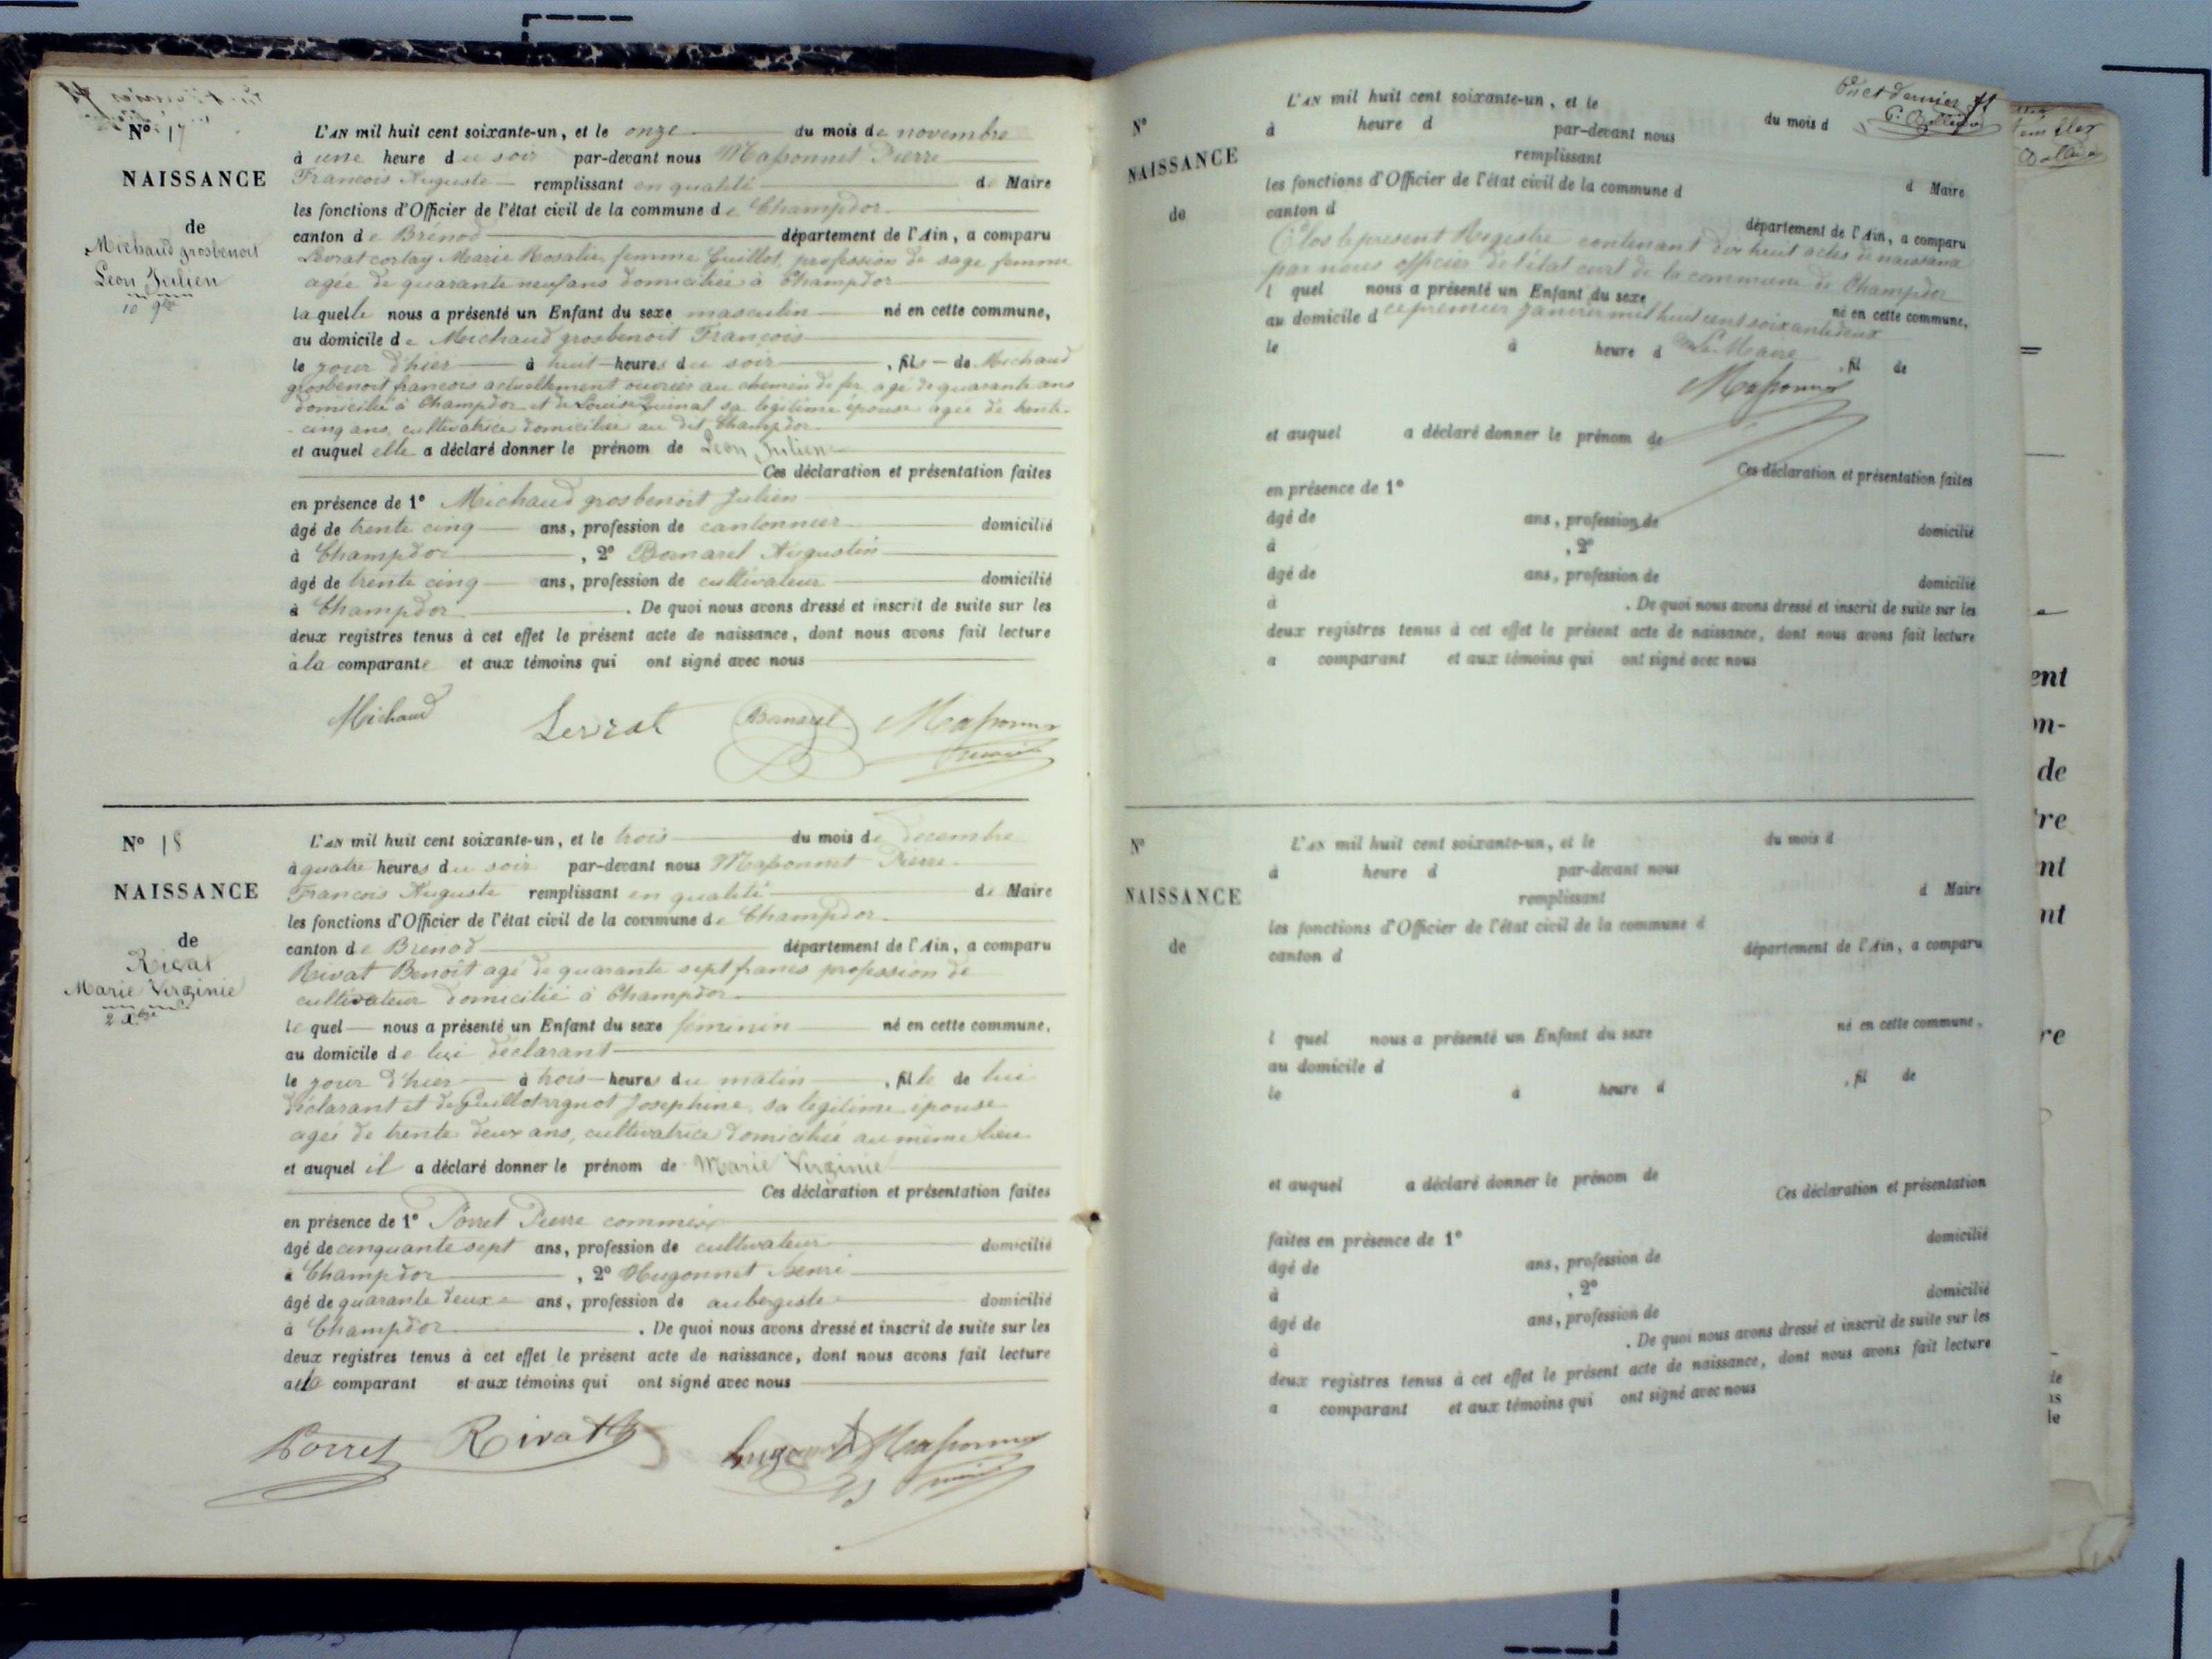 Nº 17
NAISSANCE
de
Michaud grosbenoit
Leon Julien
10 9bre
L'AN mil huit cent soixante-un, et le onze du mois de novembre
à une heure du soir par-devant nous Massonnet Pierre
François Auguste remplissant en qualité de Maire
les fonctions d'Officier de l'état civil de la commune de Champdor
canton de Brénod département de l'Ain, a comparu
Levrat corlay Marie Rosalie femme Guillot, profession de sage femme
agée de quarante neuf ans domiciliée à Champdor
la quelle nous a présenté un Enfant du sexe masculin né en cette commune,
au domicile de Michaud grosbenoit François
le jour d'hier à huit heures du soir, fils de Michaud
grosbenoit françois actuellement ouvrier au chemin de fer agé de quarante ans
domicilié à Champdor et de Louise sa légitime épouse agée de trente
cinq ans, cultivatrice domiciliée au dit Champdor
et auquel elle a déclaré donner le prénom de Leon Julien
Ces déclaration et présentation faites
en présence de 1º Michaud grosbenoit Julien
âgé de trente cinq ans, profession de cantonnier domicilié
à Champdor, 2º Banarel Augustin
âgé de trente cinq ans, profession de cultivateur domicilié
à Champdor. De quoi nous avons dressé et inscrit de suite sur les
deux registres tenus à cet effet le présent acte de naissance, dont nous avons fait lecture
à la comparante et aux témoins qui ont signé avec nous
Michaud Levrat Banarel Massonnet
Nº 18
NAISSANCE
de
Rivat
Marie Virginie
2 Xbre
L'AN mil huit cent soixante-un, et le trois du mois de decembre
à quatre heures du soir par-devant nous Massonnet Pierre
François Auguste remplissant en qualité de Maire
les fonctions d'Officier de l'état civil de la commune de Champdor
canton de Brenod département de l'Ain, a comparu
Rivat Benoît agé de quarante sept francs profession de
cultivateur domicilié à Champdor
le quel nous a présenté un Enfant du sexe féminin né en cette commune,
au domicile de lui déclarant
le jour d'hier à trois heures du matin, fille de lui
déclarant et de Josephine sa légitime épouse
agée de trente deux ans, cultivatrice domiciliée au même lieu
et auquel il a déclaré donner le prénom de Marie Virginie
Ces déclaration et présentation faites
en présence de 1º Porret Pierre
âgé de cinquante sept ans, profession de cultivateur domicilié
à Champdor, 2º Hugonnet henri
âgé de quarante deux ans, profession de aubergiste domicilié
à Champdor. De quoi nous avons dressé et inscrit de suite sur les
deux registres tenus à cet effet le présent acte de naissance, dont nous avons fait lecture
au comparant et aux témoins qui ont signé avec nous
Porret Rivat Massonnet
Nº
NAISSANCE
de
L'AN mil huit cent soixante-un, et le du mois d
à heure d par-devant nous
remplissant d Maire
les fonctions d'Officier de l'état civil de la commune d
canton d département de l'Ain, a comparu
Clos le present Registre contenant dix huit actes de naissance
par nous officier de l'état civil de la commune de Champdor
l quel nous a présenté un Enfant du sexe né en cette commune,
ce premier janvier mil huit cent soixante deux
au domicile d
Le Maire
le à heure d, fil de
Massonnet
et auquel a déclaré donner le prénom de
Ces déclaration et présentation faites
en présence de 1º
âgé de ans, profession de domicilié
à , 2º
âgé de ans, profession de domicilié
à . De quoi nous avons dressé et inscrit de suite sur les
deux registres tenus à cet effet le présent acte de naissance, dont nous avons fait lecture
a comparant et aux témoins qui ont signé avec nous
Nº
NAISSANCE
de
L'AN mil huit cent soixante-un, et le du mois d
à heure d par-devant nous
remplissant d Maire
les fonctions d'Officier de l'état civil de la commune d
canton d département de l'Ain, a comparu
l quel nous a présenté un Enfant du sexe né en cette commune,
au domicile d
le à heure d, fil de
et auquel a déclaré donner le prénom de
Ces déclaration et présentation
faites en présence de 1º domicilié
âgé de ans, profession de
à , 2º domicilié
âgé de ans, profession de
à . De quoi nous avons dressé et inscrit de suite sur les
deux registres tenus à cet effet le présent acte de naissance, dont nous avons fait lecture
a comparant et aux témoins qui ont signé avec nous
ent
on-
de
re
nt
nt
re